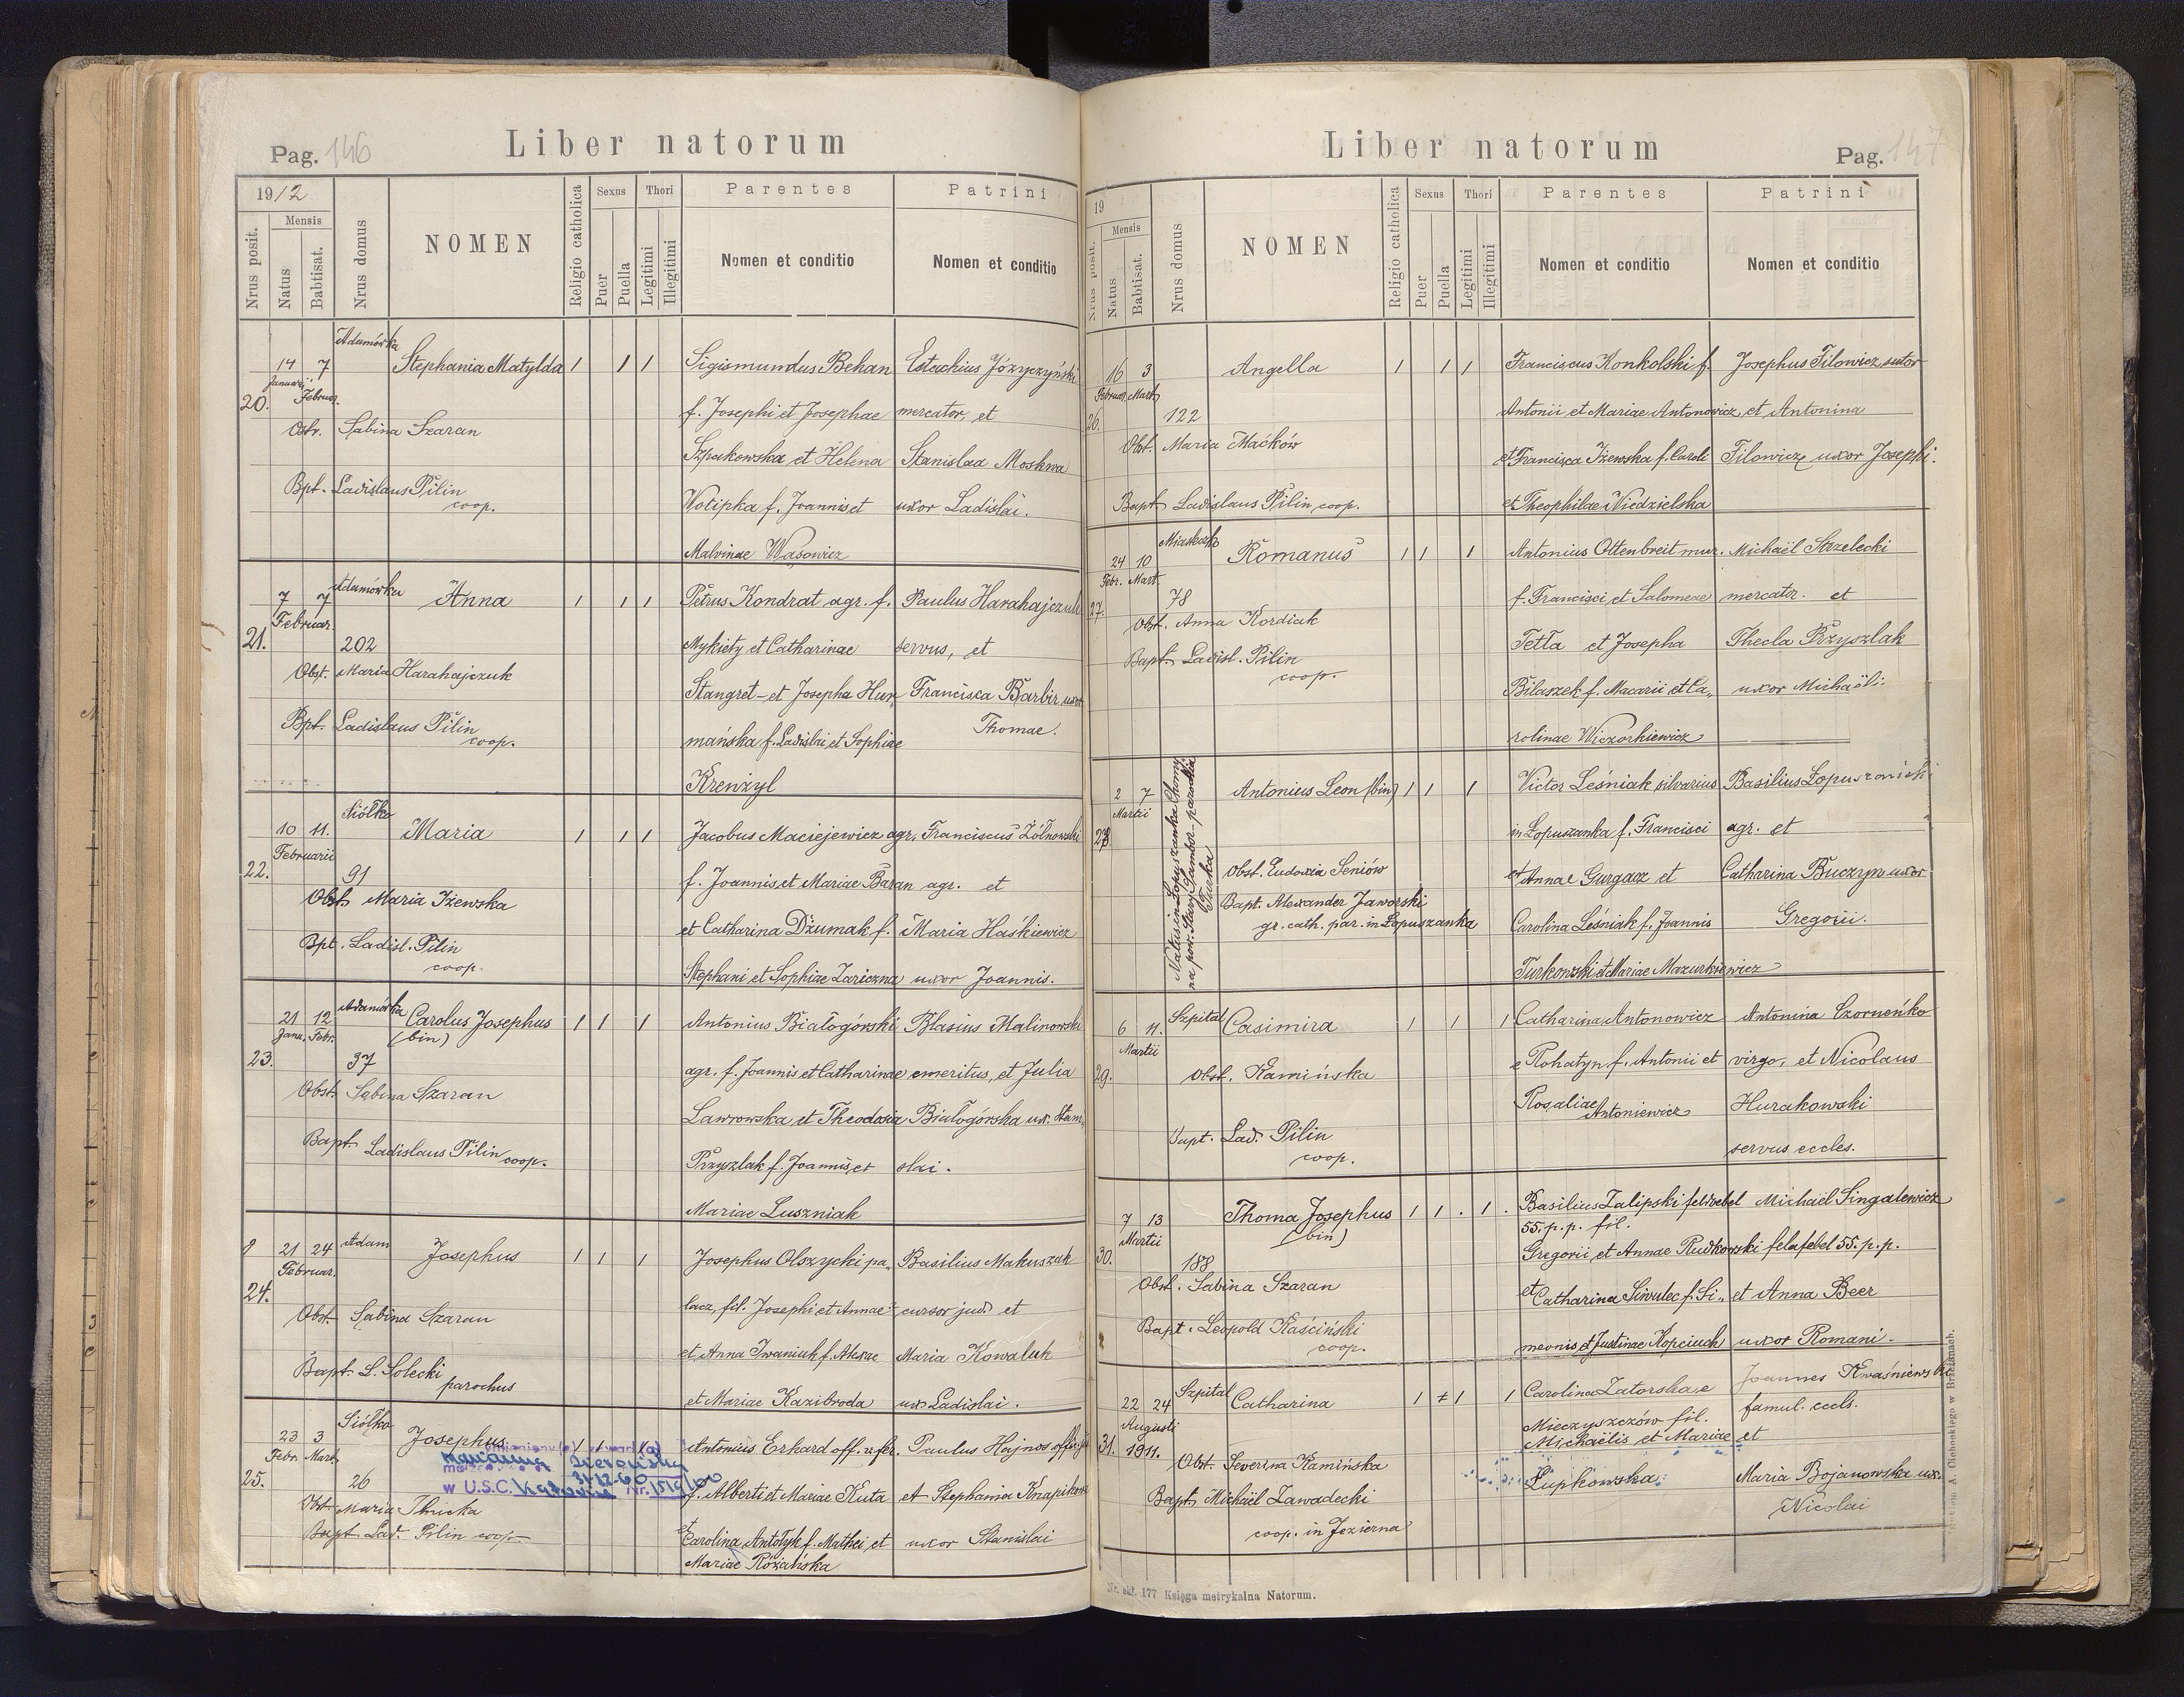 Pag. 146
Liber natorum
1912
Mensis
Nrus posit.
Natus
Babtisat.
Nrus domus
NOMEN
Religio catholica
Sexus
Puer
Puella
Thori
Legitimi
Illegitimi
Parentes
Nomen et conditio
Patrini
Nomen et conditio
20.
14 Januarii 7 Februar.
Adamówka
Stephania Matylda
1 1 1
Obst. Sabina Szaran
Bpt. Ladislaus Pilin
coop.
Sigismundus Behan
f. Josephi et Josephae
Szpakowska et Helena
Wotipka f. Joannis et
Malvinae Wąsowicz
Estachius Józyczyński
mercator, et
Stanislaa Moskwa
uxor Ladislai.
21.
7 7
Februar.
Adamówka
202
Anna
1 1 1
Obst. Maria Harahajczuk
Bpt. Ladislaus Pilin
coop.
Petrus Kondrat agr. f.
Mykiety et Catharinae
Stangret - et Josepha Hur,
mańska f. Ladislai et Sophiae
Krenżyl
Paulus Harahajczuk
servus, et
Francisca Barbir uxor
Thomae.
22.
10 11.
Februarii
Siółko
91
Maria
1 1 1
Obst. Maria Iżewska
Bpt. Ladisl. Pilin
coop.
Jacobus Maciejewicz agr.
f. Joannis et Mariae Baran
et Catharina Dżumak f.
Stephani et Sophiae Zariczna
Franciscus Żółnowski
agr. et
Maria Haśkiewicz
uxor Joannis.
23.
21 12
Janu. Febr.
Adamówka
37
Carolus Josephus
(bin)
1 1 1
Obst. Sabina Szaran
Bapt. Ladislaus Pilin coop.
Antonius Białogórski
agr. f. Joannis et Catharinae
Lawrowska et Theodosia
Przyszlak f. Joannis, et
Mariae Luszniak
Blasius Malinowski
emeritus, et Julia
Białogórska ux. Stani,
slai.
24.
21 24
Februar.
Adam
Josephus
1 1 1
Obst. Sabina Szaran
Bapt. L. Solecki
parochus
Josephus Olszycki pa,
lacz, fil. Josephi et Annae
et Anna Iwaniuk f. Alexae
et Mariae Kazibroda
Basilius Makuszak
cursor jud. et
Maria Kowaluk
ux. Ladislai.
25.
23 3
Febr. Mart.
Siółko
26
Josephus
w U.S.C.
31-12-60
Obst. Maria
Bapt. Lad. Pilin coop.
Antonius Erhard off. v. fer.
f. Alberti et Mariae Kuta
et
Carolina Antołyk f. Mathei et
Mariae Różańska
Paulus Hajnos
et Stephania
uxor Stanislai
Liber natorum
Pag. 147
19
Mensis
Nrus posit.
Natus
Babtisat.
Nrus domus
NOMEN
Religio catholica
Sexus
Puer
Puella
Thori
Legitimi
Illegitimi
Parentes
Nomen et conditio
Patrini
Nomen et conditio
26.
16 3
Februar. Mart.
122
Angella
1 1 1
Obst. Maria Maćków
Bapt. Ladislaus Pilin coop.
Franciscus Konkolski f.
Antonii et Mariae Antonowicz
et Francisca Iżewska f. Caroli
et Theophilae Niedzielska
Josephus Filowicz, sutor
et Antonina
Filowicz uxor Josephi.
27.
24 10
Febr. Mart.
Miasteczko
78
Romanus
1 1 1
Obst. Anna Kordiak
Bapt. Ladisl. Pilin
coop.
Antonius Ottenbreit mur.
f. Francisci et Salomeae
Tetla et Josepha
Bilaszek f. Macarii et Ca,
rolinae Wiczorkiewicz
Michaël Strzelecki
mercator. et
Thecla Przyszlak
uxor Michaëli.
28.
2 7
Martii
Natus in Łopuszanka Chomy
na pow. Stary Sambor - parochia
Turka
Antonius Leon (bin)
1 1 1
Obst. Eudoxia Seniów
Bapt. Alexander Jaworski
gr. cath. par. in Łopuszanka
Victor Leśniak silvarius
in Łopuszanka f. Francisci
et Annae Gurgacz et
Carolina Leśniak f. Joannis
Turkowski et Mariae Mazurkiewicz
Basilius Łopuszański
agr. et
Catharina Buczyn uxor
Gregorii.
29.
6 11.
Martii
Szpital
Casimira
1 1 1
Obst. Kamińska
Bapt. Lad. Pilin
coop.
Catharina Antonowicz
e Rohatyn f. Antonii et
Rosaliae Antoniewicz
Antonina Czorneńko
virgo, et Nicolaus
Hurakowski
servus eccles.
30.
7 13
Martii
188
Thoma Josephus
(bin)
1 1 . 1 .
Obst. Sabina Szaran
Bapt. Leopold Kaściński
coop.
Basilius Zalipski feldwebel
55. p. p. fil.
Gregorii et Annae Rudkowski
et Catharina Siwulec f. Si,
meonis et Justinae Kopciuch
Michael Singalewicz
felafebel 55. p. p.
et Anna Beer
uxor Romani.
31.
22 24
Augusti
1911.
Szpital
Catharina
1 1 1
Obst. Severina Kamińska
Bapt. Michaël Zawadecki
coop. in Jezierna
Carolina Zatorska e
Mieczyszczów fil.
Michaëlis et Mariae
Łupkowska
Joannes Kwaśniewski
famul. eccls.
et
Maria Bojanowska ux.
Nicolai
Nr. skł. 177 Księga metrykalna Natorum.
A. Cichockiego w Brzeżanach.